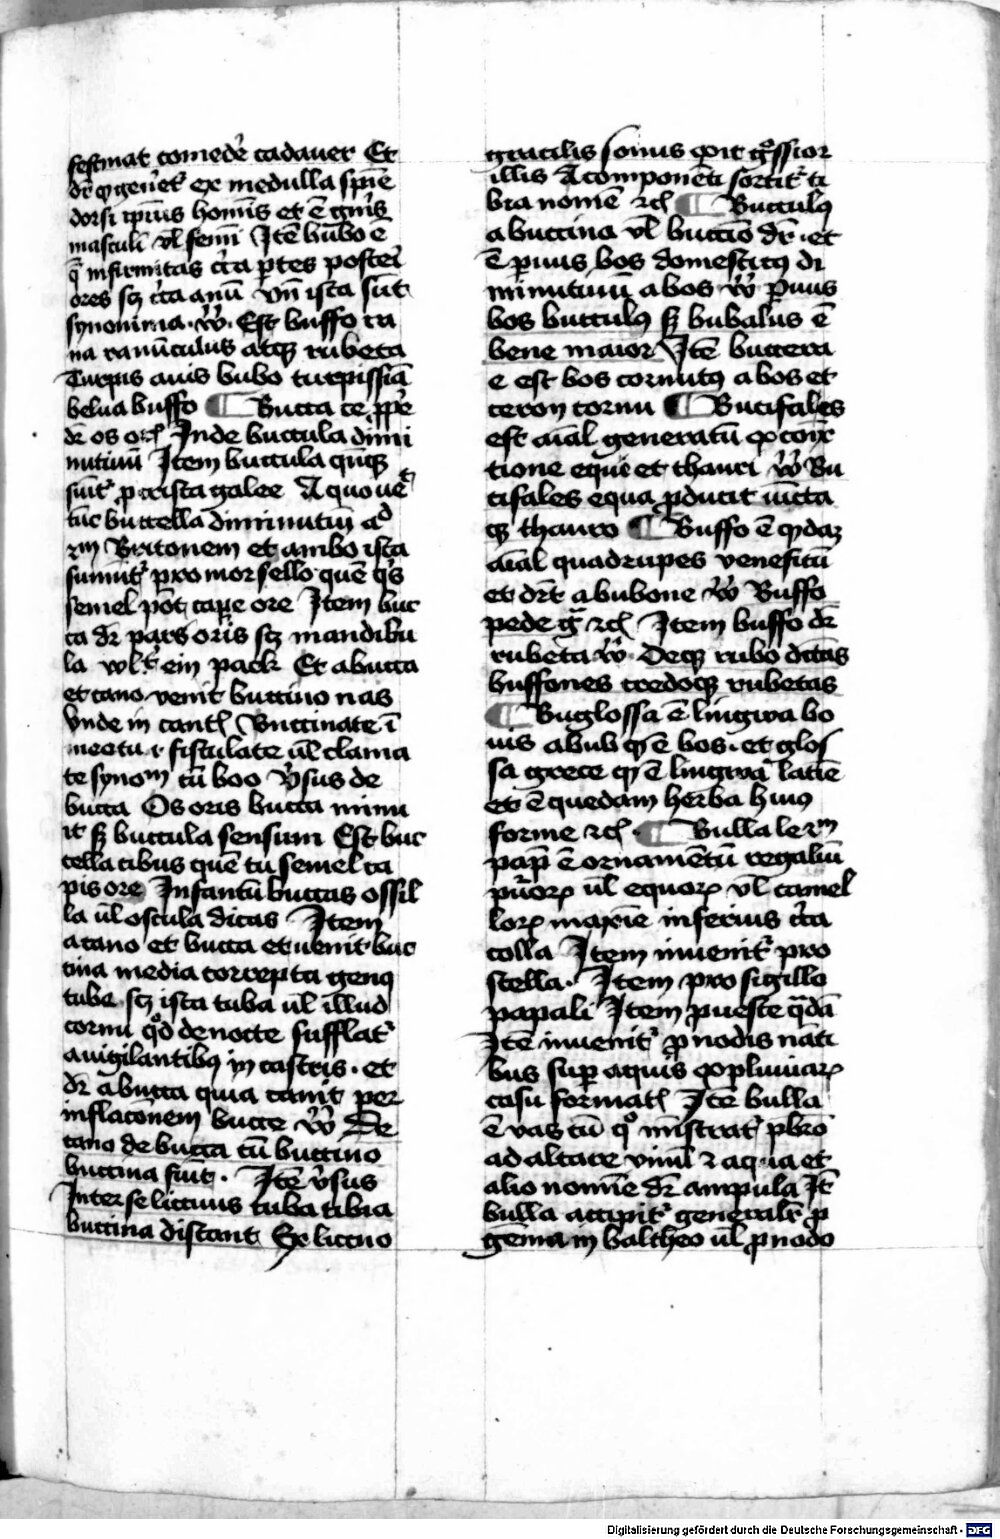 festinat comedẽ cadauer Et
dr̄ ꝙ gen̄et᷑ ex medulla spīe
dorsi ipīus homīs et ē gn̄is
masculī vl̄ femī Itē bubo ē
q̄ infirmitas cīca ꝑtes posteri
ores sꝫ cīca anū vn̄ ista sūt
synonima vͦ Est buffo ra
na ranūculus atqꝫ rubeta
Turpis auis bubo turpissīa
belua buffo Bucca ce ꝓpͥe
dr̄ os orꝭ Inde buccula dimi
nutiuū Item buccula qn̄qꝫ
sūit᷑ ꝓ crista galee A quo ue
tūc buccella diminutiuū
Buctonem et ambo ista
sumūt᷑ pro morsello quē qͥs
semel pōt capͤe ore Item buc
ca dr̄ pars oris sꝫ mandibu
la wl᷑t ein pack Et a bucca
et cano venit buccino nas
Vnde in cantꝭ Buccinate ī
meotu .i. fistulate ul̄ clama
te synoᵐ cū boo V̓sus de
bucca Os oris bucca minu
it sꝫ buccula sensum Est buc
cella cibus quē tu semel ca
pis ore Infantū buccas ossil
la ul̄ oscula dicas Item
a cano et bucca et uenit buc
cina media correpta genꝰ
tube sꝫ ista tuba ul̄ illud
cornu qd̓ de nocte sufflat᷑
a uigilantibꝰ in castris . et
dr̄ a bucca quia canit per
inflacōnem bucce vͦ De
cano de bucca cū buccino
buccina fiūt . Itē v̓sus
Inter se lituus tuba tibia
buccina distant Ex lituo
gracilis sonus exit gͦssior
illis A componēti sortit᷑ ti
bia nomē ⁊cꝭ Bucculꝰ
a buccina vl̄ buccīo dr̄ . et
ē ꝑuus bos domesticꝰ di
minutiuū a bos vͦ ꝑuus
bos bucculꝰ sꝫ bubalus ē
bene maior Itē buccera
e est bos cornutꝰ a bos et
ceron cornu Bucifales
est aīal generatū ex cōiūc
tione eque et thauri vͦ Bu
cifales equa ꝓducit iūcta
qꝫ thauro Buffo ē ꝙdaꝫ
aīal quadrupes venefitū
et dr̄t a bubone vͦ Buffo
pede gͣ ⁊cꝭ Item buffo dr̄
rubeta vͦ Deqꝫ rubo dc̄tas
buffones credoqꝫ rubetas
Buglossa ē lingwa bo
uis a bub qͥ ē bos . et glos
sa grece qͥ ē lingwa latīe
et ē quedam herba huiꝰ
forme ⁊cꝭ Bulla le ẜm
pap̄ ē ornamētū regaliū
pūorꝝ ul̄ equorꝝ vl̄ camel
lorꝝ maxīe inferius cīca
colla Item inuenit᷑ pro
stella . Item pro sigillo
papali Item ꝓ ueste qͣdā
Itē inuenit᷑ ꝓ nodis nati
bus suꝑ aquis ex pluuiarꝝ
casu formatꝭ Itē bulla
ē vas cū qͦ mīstrat᷑ pb̄ro
ad altare vinū ⁊ aqua et
alio nomīe dr̄ ampula Itē
bulla accipit᷑ generalr̄ ꝓ
gēma in baltheo ul̄ ꝓ nodo
Digitalisierung gefördert durch die Deutsche Forschungsgemeinschaft - DFG